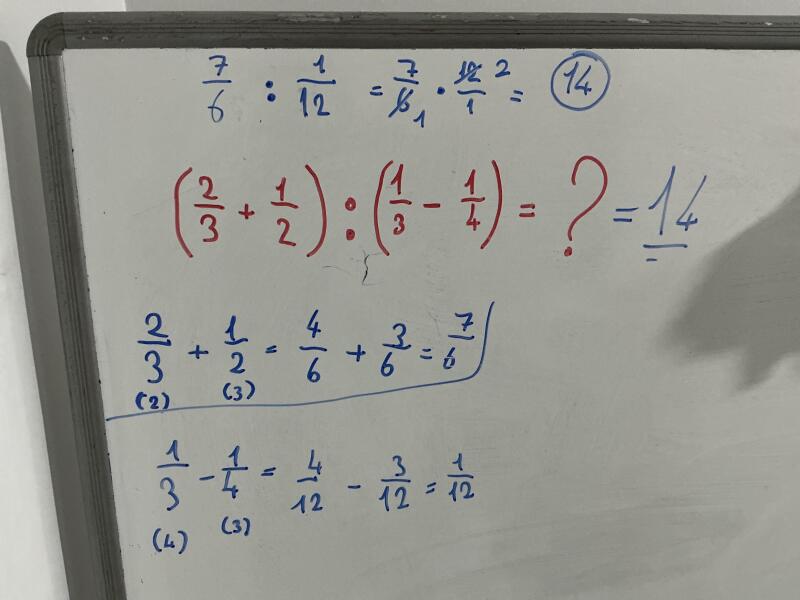 7/6 : 1/12 = 7/6 1 · 12/1 2 = 14
(2/3 + 1/2) : (1/3 - 1/4) = ? = 14
2/3 + 1/2 = 4/6 + 3/6 = 7/6
(2) (3)
1/3 - 1/4 = 4/12 - 3/12 = 1/12
(4) (3)